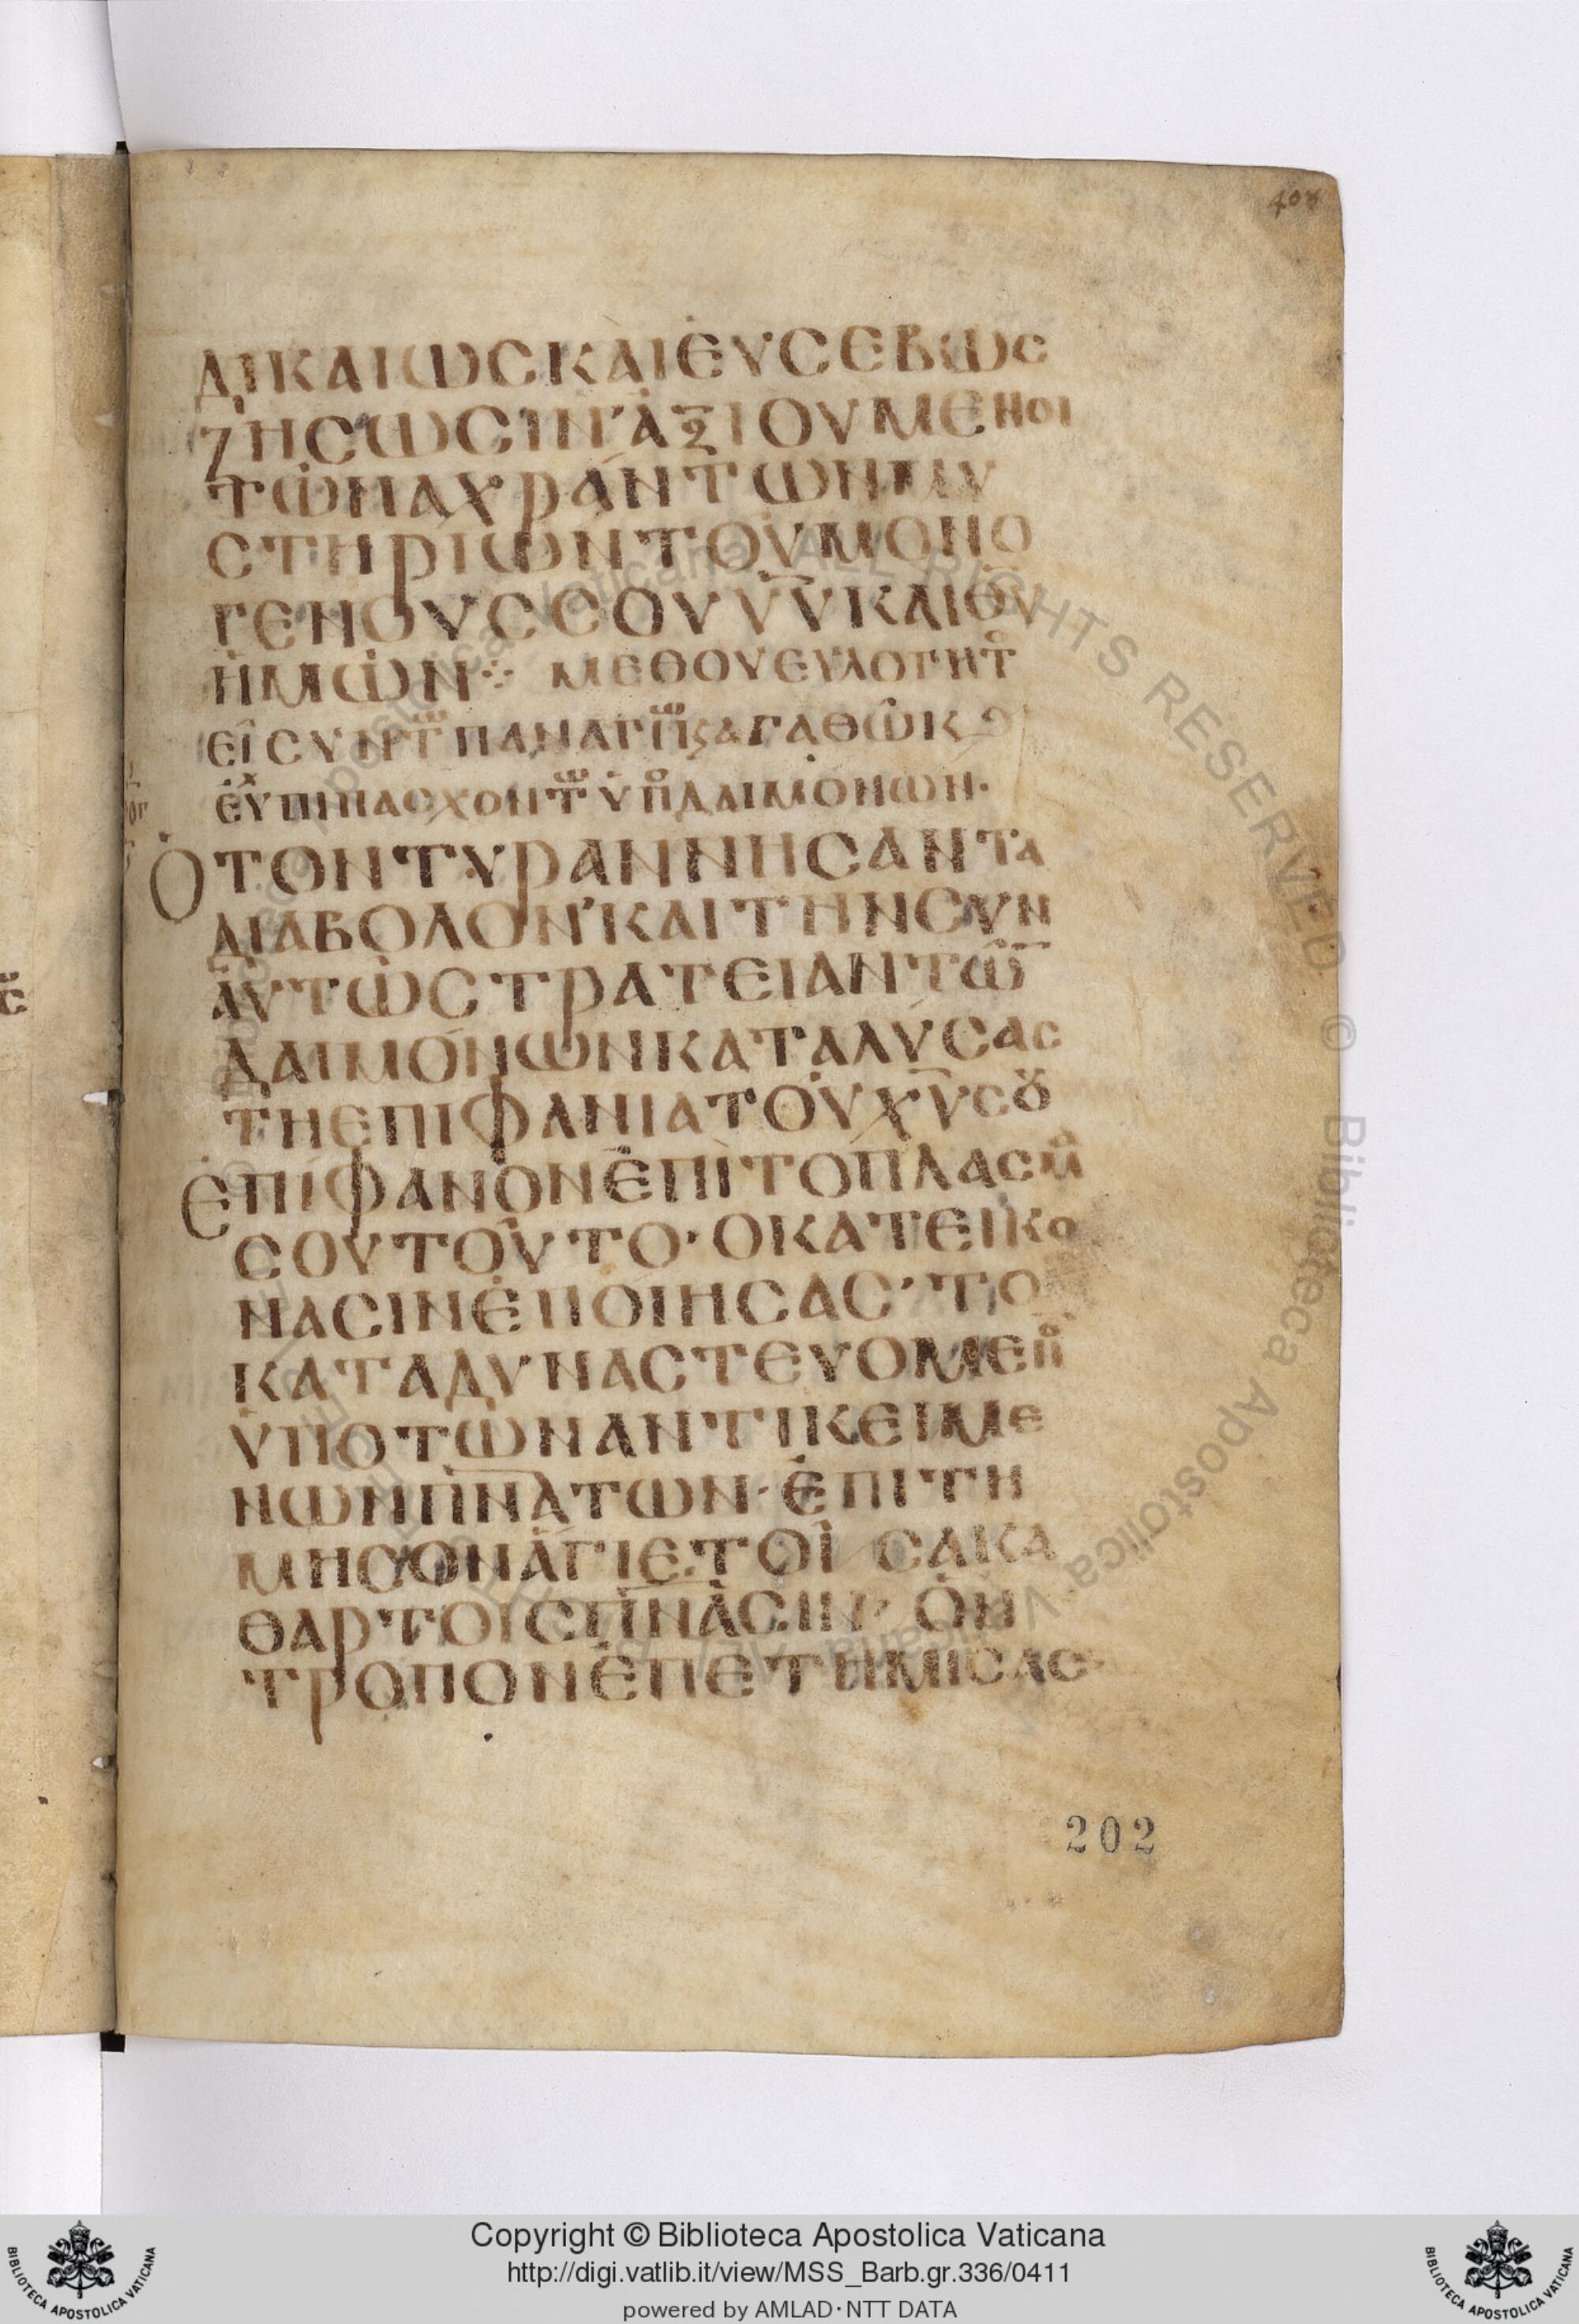 408
ΔΙΚΑΙΩCΚΑΙΕΥCΕΒΩC
ΖΗCΩCΙΝ ΑΞΙΟΥΜΕΝΟΙ
ΤΩΝΑΧΡΑΝΤΩΝΜΥ
CΤΗΡΙΩΝΤΟΥΜΟΝΟ
ΓΕΝΟΥCCΟΥΥ̅Υ̅ΚΑΙΘ̅Υ̅
ΗΜΩΝ⁘ ΜΕΘΟΥΕΥΛΟΓΗΤᵒ
ΕΙCΥΝΤʷΠΑΝΑΓΙΠʷϚΑΓΑΘΩΚ
ΕΥΧΠΙΠΑCΧΟΝΤʷΥΠᵒΔΑΙΜΟΝΩΝ·
ΟΤΟΝΤΥΡΑΝΝΗCΑΝΤΑ
ΔΙΑΒΟΛΟΝ'ΚΑΙΤΗΝCΥΝ
ΑΥΤΩCΤΡΑΤΕΙΑΝΤΩ̅
ΔΑΙΜΟΝΩΝΚΑΤΑΛΥCΑC
ΤΗΕΠΙΦΑΝΙΑΤΟΥΧ̅Υ̅CȢ
ΕΠΙΦΑΝΟΝΕΠΙΤΟΠΛΑCΜᵃ
CΟΥΤΟΥΤΟ·ΟΚΑΤΕΙΚΟ
ΝΑCΙΝΕΠΟΙΗCΑC'ΤΟ
ΚΑΤΑΔΥΝΑCΤΕΥΟΜΕΝᵒ
ΥΠΟΤΩΝΑΝΤΙΚΕΙΜΕ
ΝΩΝΠ̅Ν̅Α̅ΤΩΝ·ΕΠΙΤΗ
ΜΗCΟΝΑΓΙΕ·ΤΟΙ CΑΚΑ
ΘΑΡΤΟΙCΠ̅Ν̅Α̅CΙΝ· ΟΝ
ΤΡΟΠΟΝΕΠΕΤΗΜΙCΑC
202
Copyright © Biblioteca Apostolica Vaticana
http://digi.vatlib.it/view/MSS_Barb.gr.336/0411
powered by AMLAD·NTT DATA
BIBLIOTECA APOSTOLICA VATICANA
BIBLIOTECA APOSTOLICA VATICANA